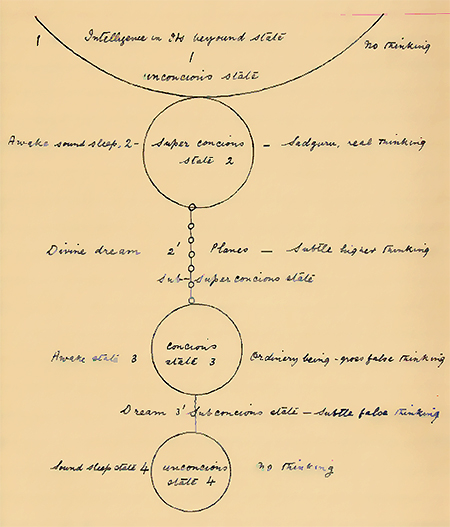 1 Intelligence in Its beyound state No thinking
1
unconcious state
Awake sound sleep, 2 - Super concious - Sadguru, real thinking
state 2
Divine dream 2' Planes - Subtle higher thinking
Sub-Super concious state
Awake state 3 concious Ordinery being - gross false thinking
state 3
Dream 3' Subconcious state - Subtle false thinking
Sound sleep state 4 unconcious no thinking
state 4